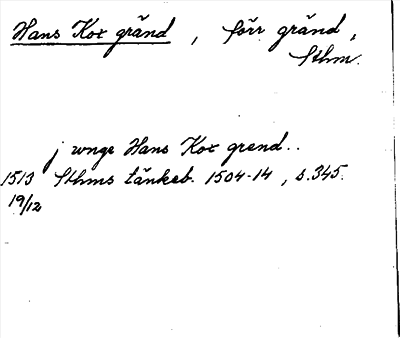 Hans Kox gränd, förr gränd,
Sthm.
j unge Hans Kox grend..
1513 Sthms tänkeb. 1504-14, s.345.
19/12